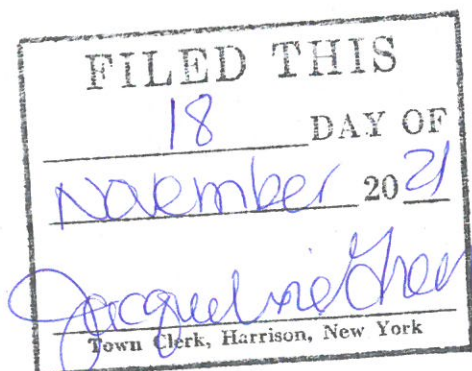 FILED THIS
18 DAY OF
November 20 21
Jacqueline Greer
Town Clerk, Harrison, New York